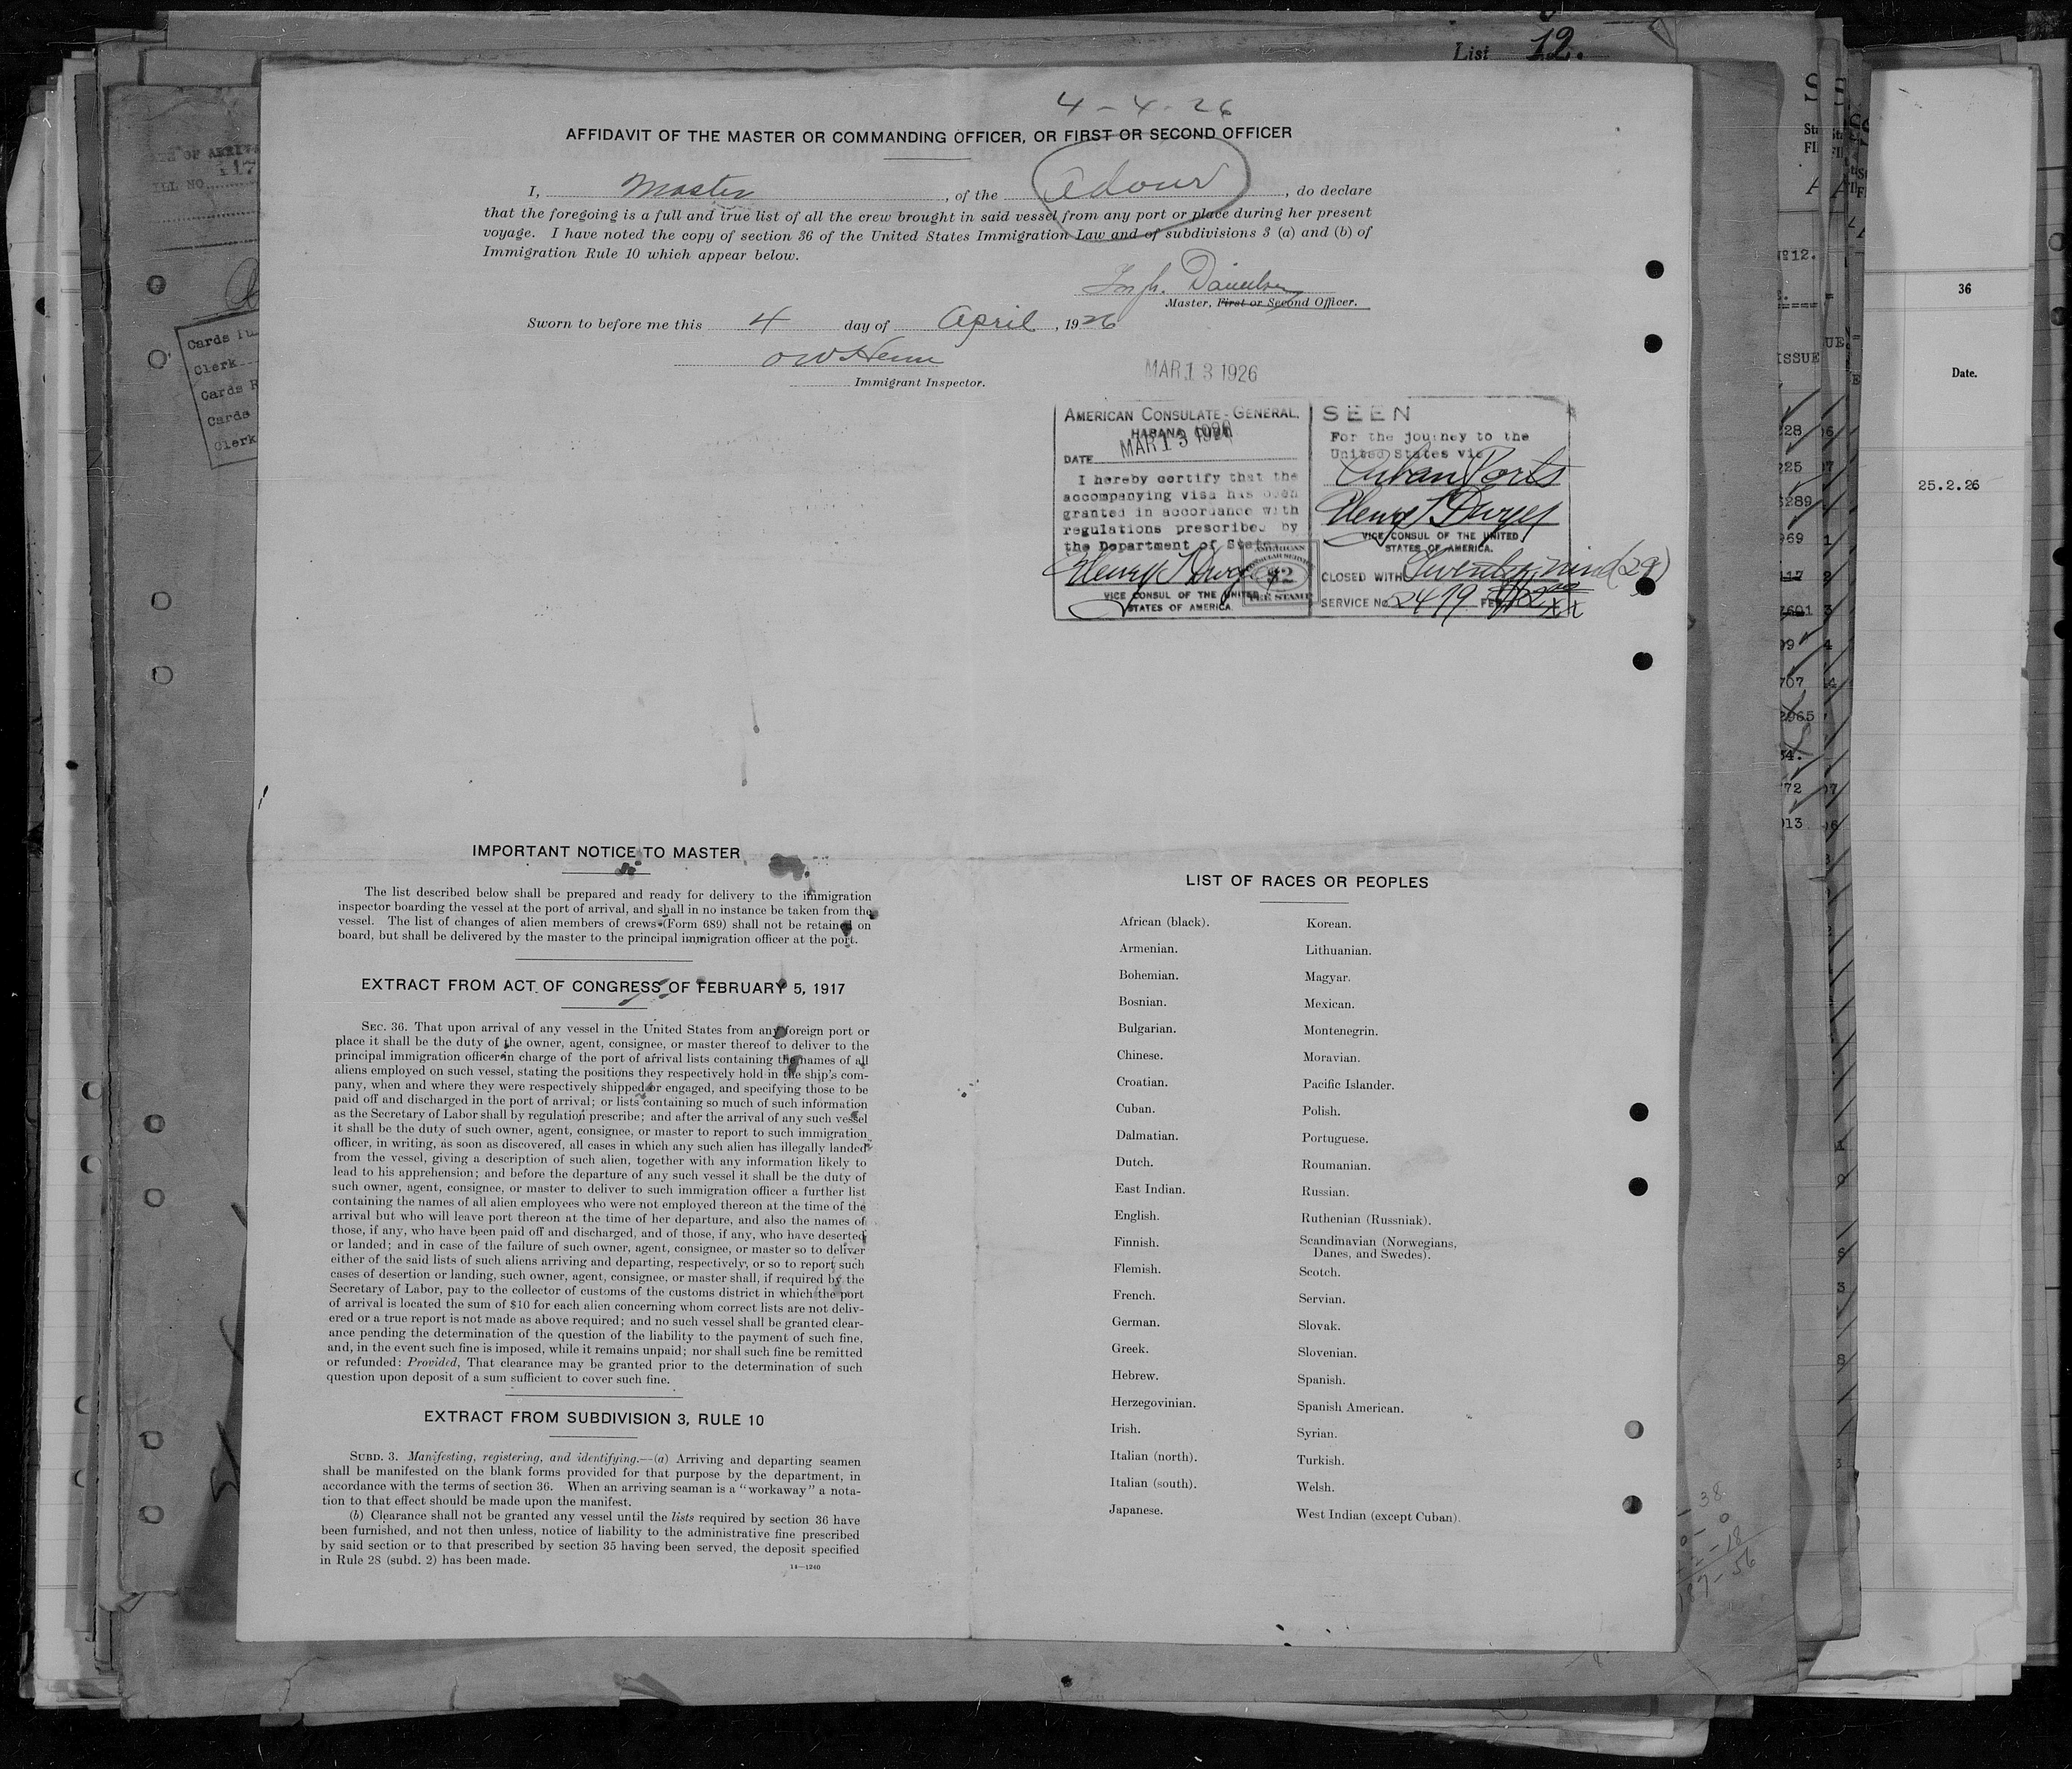 List 12.
4-4-26
AFFIDAVIT OF THE MASTER OR COMMANDING OFFICER, OR FIRST OR SECOND OFFICER
I, Master, of the Adour, do declare
that the foregoing is a full and true list of all the crew brought in said vessel from any port or place during her present
voyage. I have noted the copy of section 36 of the United States Immigration Law and of subdivisions 3 (a) and (b) of
Immigration Rule 10 which appear below.
Master, First or Second Officer.
Sworn to before me this 4 day of April, 1926
Immigrant Inspector.
MAR 13 1926
AMERICAN CONSULATE-GENERAL.
HABANA, CUBA
DATE MAR 13 1926
I hereby certify that the
accompanying visa has been
granted in accordance with
regulations prescribed by
the Department of State.
VICE CONSUL OF THE UNITED
STATES OF AMERICA.
AMERICAN
CONSULAR SERVICE
$2
FEE STAMP
SEEN
For the journey to the
United States via
Cuban Ports
VICE CONSUL OF THE UNITED
STATES OF AMERICA.
CLOSED WITH (29)
SERVICE No. 2479 FEE
IMPORTANT NOTICE TO MASTER
The list described below shall be prepared and ready for delivery to the immigration
inspector boarding the vessel at the port of arrival, and shall in no instance be taken from the
vessel. The list of changes of alien members of crews (Form 689) shall not be retained on
board, but shall be delivered by the master to the principal immigration officer at the port.
EXTRACT FROM ACT OF CONGRESS OF FEBRUARY 5, 1917
SEC. 36. That upon arrival of any vessel in the United States from any foreign port or
place it shall be the duty of the owner, agent, consignee, or master thereof to deliver to the
principal immigration officer in charge of the port of arrival lists containing the names of all
aliens employed on such vessel, stating the positions they respectively hold in the ship's com-
pany, when and where they were respectively shipped or engaged, and specifying those to be
paid off and discharged in the port of arrival; or lists containing so much of such information
as the Secretary of Labor shall by regulation prescribe; and after the arrival of any such vessel
it shall be the duty of such owner, agent, consignee, or master to report to such immigration
officer, in writing, as soon as discovered, all cases in which any such alien has illegally landed
from the vessel, giving a description of such alien, together with any information likely to
lead to his apprehension; and before the departure of any such vessel it shall be the duty of
such owner, agent, consignee, or master to deliver to such immigration officer a further list
containing the names of all alien employees who were not employed thereon at the time of the
arrival but who will leave port thereon at the time of her departure, and also the names of
those, if any, who have been paid off and discharged, and of those, if any, who have deserted
or landed; and in case of the failure of such owner, agent, consignee, or master so to deliver
either of the said lists of such aliens arriving and departing, respectively, or so to report such
cases of desertion or landing, such owner, agent, consignee, or master shall, if required by the
Secretary of Labor, pay to the collector of customs of the customs district in which the port
of arrival is located the sum of $10 for each alien concerning whom correct lists are not deliv-
ered or a true report is not made as above required; and no such vessel shall be granted clear-
ance pending the determination of the question of the liability to the payment of such fine,
and, in the event such fine is imposed, while it remains unpaid; nor shall such fine be remitted
or refunded: Provided, That clearance may be granted prior to the determination of such
question upon deposit of a sum sufficient to cover such fine.
EXTRACT FROM SUBDIVISION 3, RULE 10
SUBD. 3. Manifesting, registering, and identifying.—(a) Arriving and departing seamen
shall be manifested on the blank forms provided for that purpose by the department, in
accordance with the terms of section 36. When an arriving seaman is a "workaway" a nota-
tion to that effect should be made upon the manifest.
(b) Clearance shall not be granted any vessel until the lists required by section 36 have
been furnished, and not then unless, notice of liability to the administrative fine prescribed
by said section or to that prescribed by section 35 having been served, the deposit specified
in Rule 28 (subd. 2) has been made.
14—1240
LIST OF RACES OR PEOPLES
African (black).
Armenian.
Bohemian.
Bosnian.
Bulgarian.
Chinese.
Croatian.
Cuban.
Dalmatian.
Dutch.
East Indian.
English.
Finnish.
Flemish.
French.
German.
Greek.
Hebrew.
Herzegovinian.
Irish.
Italian (north).
Italian (south).
Japanese.
Korean.
Lithuanian.
Magyar.
Mexican.
Montenegrin.
Moravian.
Pacific Islander.
Polish.
Portuguese.
Roumanian.
Russian.
Ruthenian (Russniak).
Scandinavian (Norwegians,
Danes, and Swedes).
Scotch.
Servian.
Slovak.
Slovenian.
Spanish.
Spanish American.
Syrian.
Turkish.
Welsh.
West Indian (except Cuban).
36
Date.
25.2.26
Clerk
Cards
Clerk